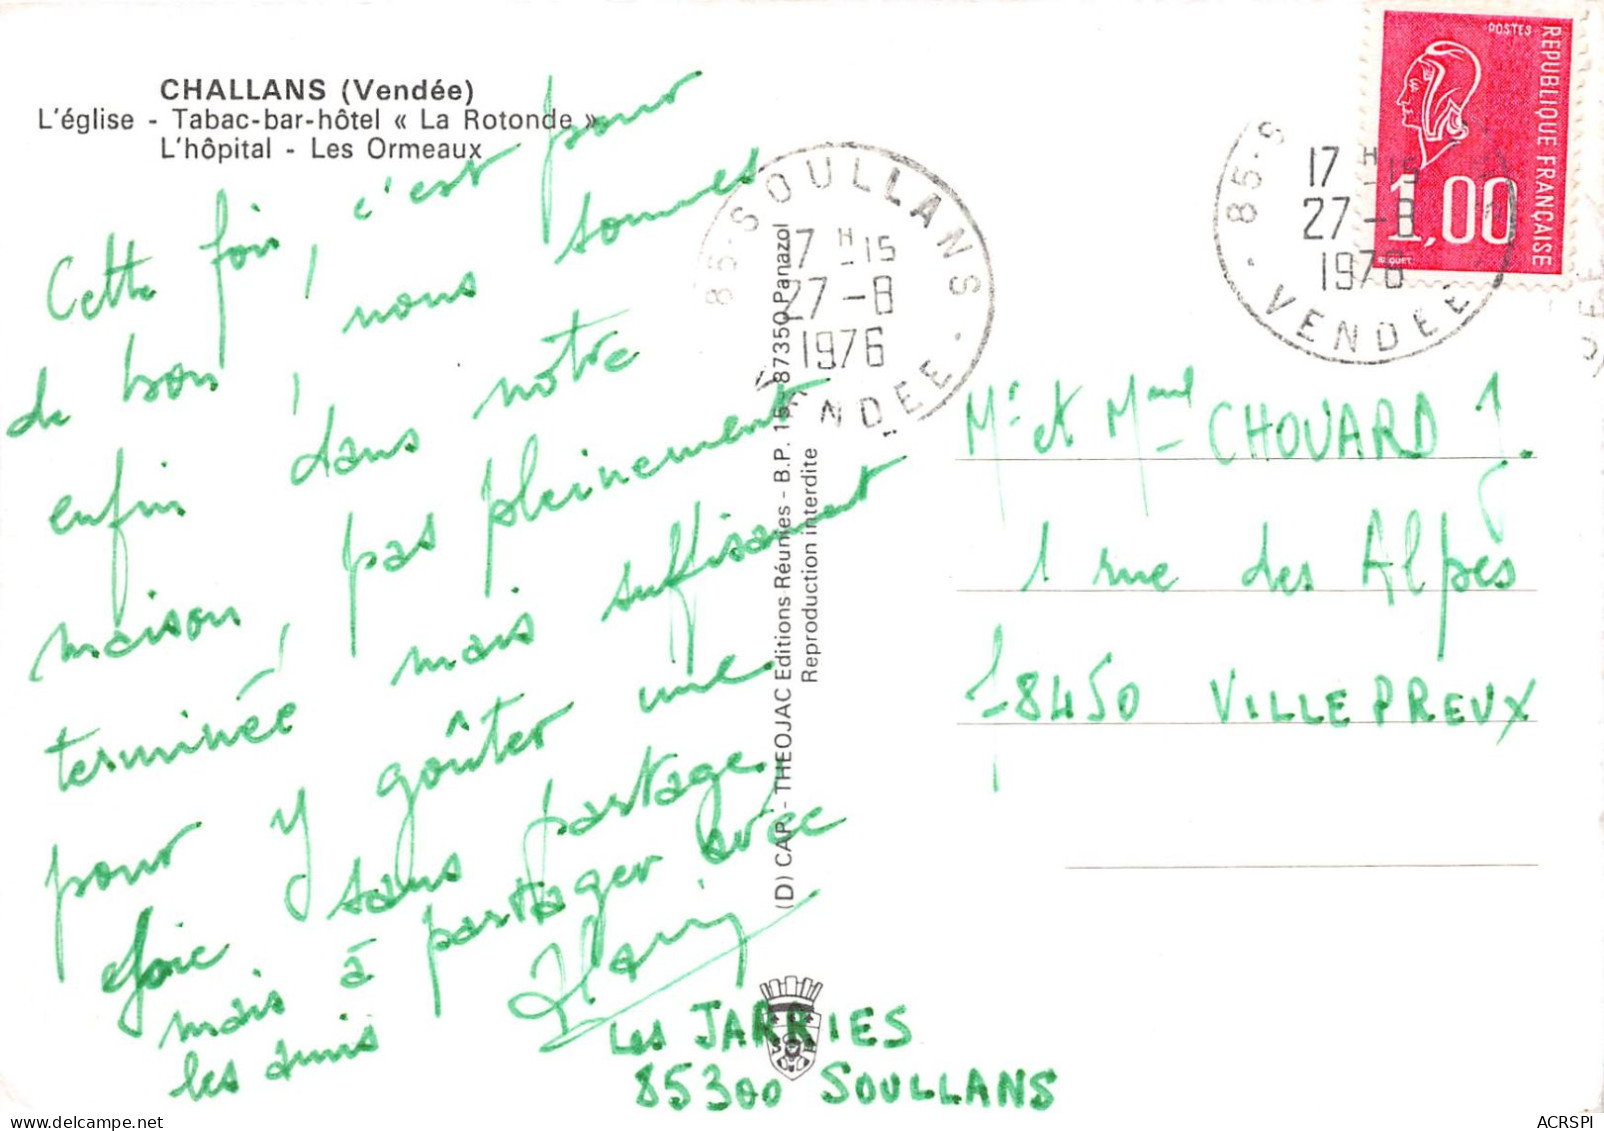 CHALLANS (Vendée)
L'église - Tabac-bar-hôtel « La Rotonde »
L'hôpital - Les Ormeaux
Cette fois, c'est pour
de bon, nous sommes
enfin dans notre
maison, pas pleinement
terminée mais suffisament
pour y goûter une
joie sans partage
mais à partager avec
les amis
Les JARRIES
85300 SOULLANS
(D) CAP - THEOJAC Editions-Réunies - B.P. 15 - 87350 Panazol
Reproduction interdite
85-SOULLANS
17 H-15
27-8
1976
VENDEE
85-S
17 H-15
27-8
1976
VENDEE
POSTES
REPUBLIQUE FRANÇAISE
1,00
BEQUET
Mr et Mme CHOUARD J.
1 rue des Alpes
78450 VILLEPREUX
ACRSPI